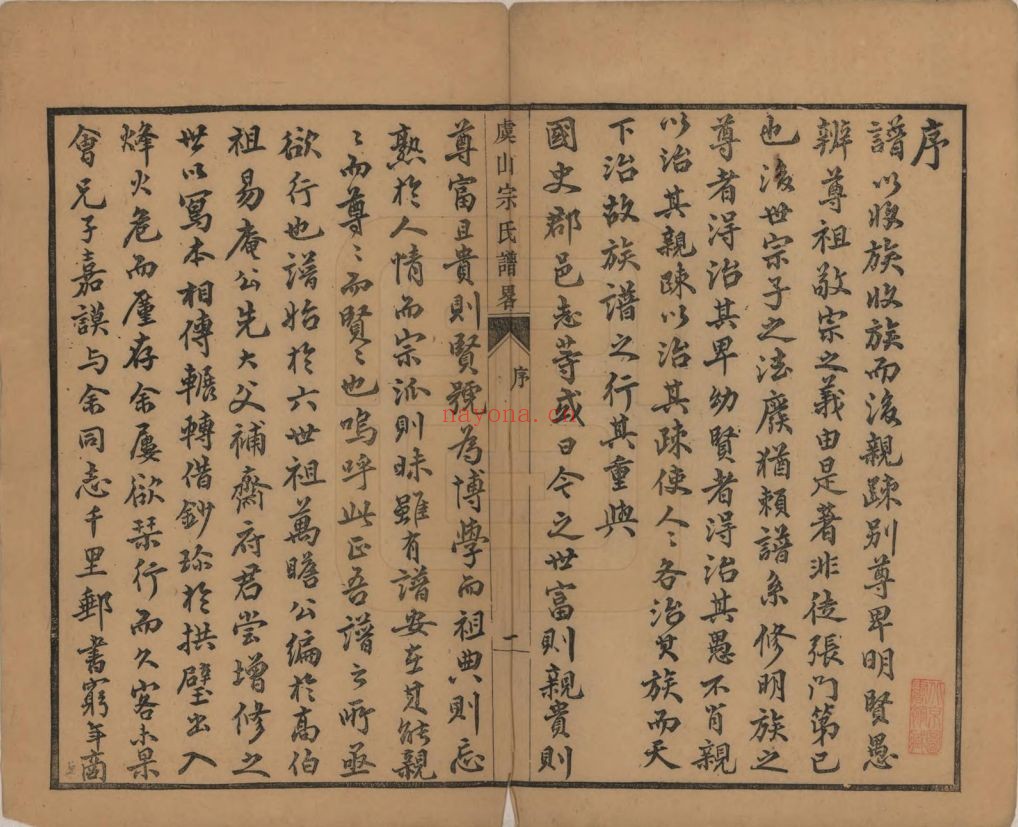 序
譜以聮族收族而後親疎别尊卑明賢愚
辨尊祖敬宗之義由是著非徒張門第已
也後世宗子之法廢猶賴譜系修明族之
尊者淂治其卑幼賢者淂治其愚不肖親
以治其親疎以治其疎使人〻各治其族而天
下治故族譜之行其重與
國史郡邑志等或曰今之世富則親貴則
虞山宗氏譜畧
序
一
尊富且貴則賢號為博學而祖典則忘
熟於人情而宗派則昧雖有譜安在其能親
〻而尊〻而賢〻也嗚呼此正吾譜之所亟
欲行也譜始於六世祖萬瞻公編於高伯
祖易庵公先大父補齋府君嘗增修之
世以寫本相傳輾轉借鈔珍於拱璧出入
烽火危而廑存余屢欲栞行而久客未果
會兄子嘉謨与余同志千里郵書窮年商
nayona.cn